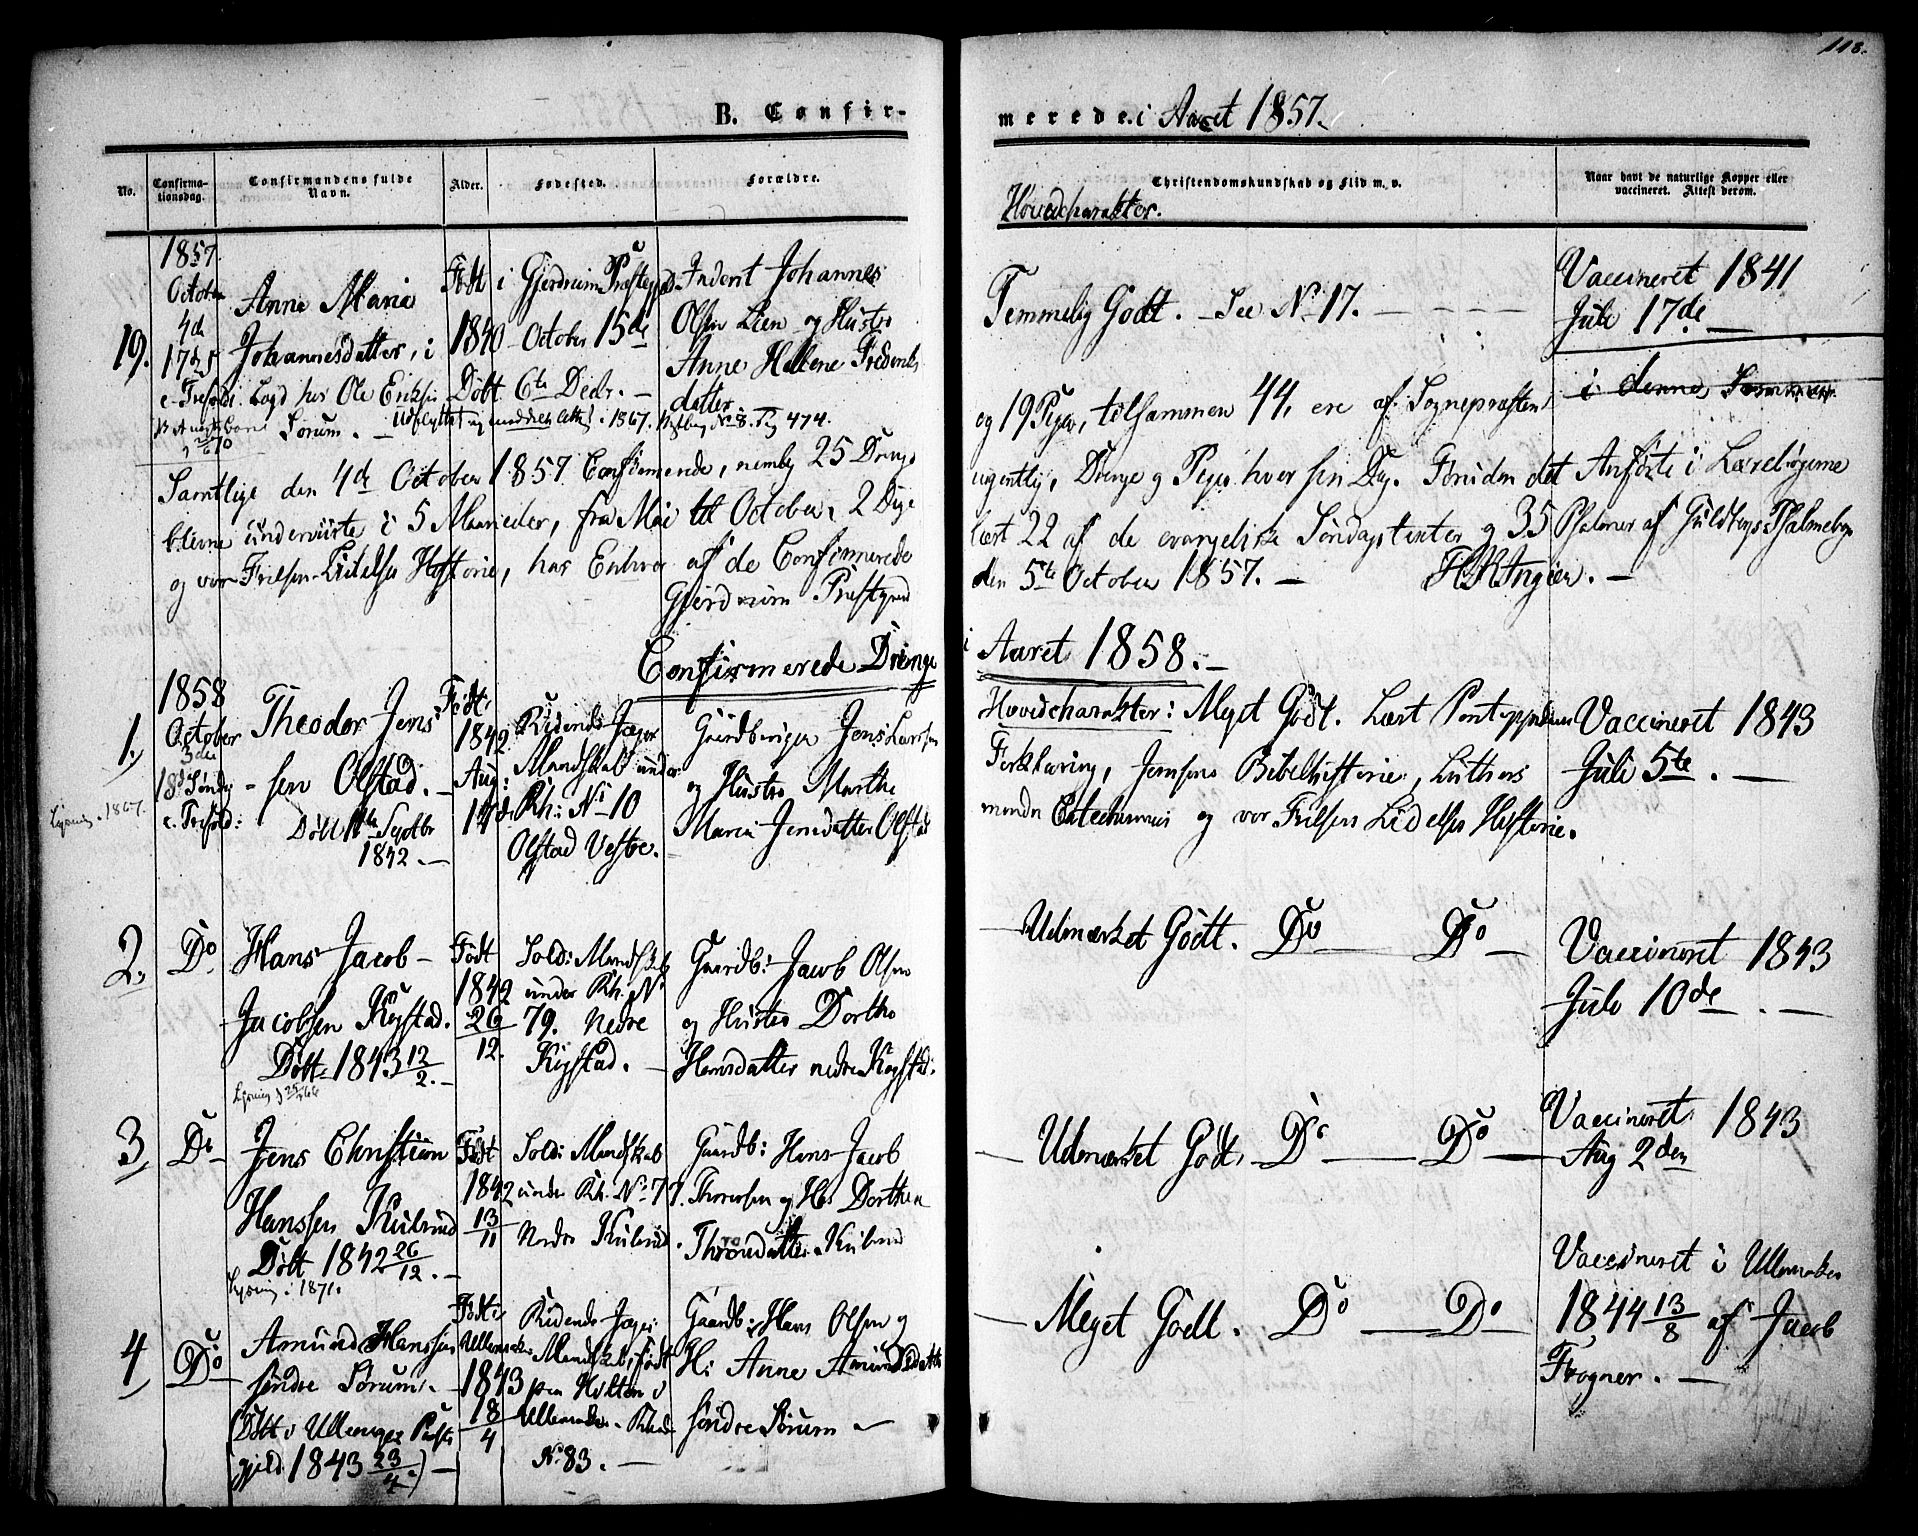 118.
B. Confir-
merede. i Aaret 1857.
No.
Confirma-
tionsdag.
Confirmandens fulde
Navn.
Alder.
Fødested.
Forældre.
Christendomskundskab og Flid m. v.
Hovedcharakter.
Naar havt de naturlige Kopper eller
vaccineret. Attest derom.
19.
1857
October
4de
17 d S
e. Trefold.
Anne Maria
Johannesdatter, i
Lægd hos Ole Eriksen
Sørum.
Født i Gjerdrum Præstegjd.
1840 October 15de
Døbt 6te Decbr.
Udflyttet i 1867. No 8. Pag 474.
Inderst Johannes
Olsen Lien og Hustro
Anne Hellene Frederiks
datter
Temmelig Godt. See No 17.
Vaccineret 1841
Juli 17de
i denne Sommer.
Samtlige den 4de October 1857 Confirmerede, nemlig 25 Drenge
og 19 Piger, tilsammen 44, ere af Sognepræsten
blevne underviiste i 5 Maaneder, fra Mai til October, 2 Dage
ugentlig, Drenge og Piger hver sin Dag. Foruden det Anførte i Lærebøgerne
og vor Frelsers Lidelses Historie, har Enhver af de Confirmerede
lært 22 af de evangeliske Søndagstexter og 35 Psalmer af Guldbergs Psalmebog
Gjerdrum Præstgaard
den 5te October 1857.
Confirmerede Drenge
i Aaret 1858.
1.
1858
October
3die
18d Søndg
e. Trefold:
Lysning 1867.
Theodor Jens
sen Olstad.
Døbt 11te Septbr
1842.
Født
1842
Aug:
14de
Ridende Jæger
Mandskab under
Rh: No 10
Olstad Vestre.
Gaardbruger Jens Larssen
og Hustro Marthe
Maria Jensdatter Olstad
Hovedcharakter: Meget Godt. Læst Pontoppidans
Forklaring, Jensens Bibelhistorie, Luthers
mindre Catechismus og vor Frelsers Lidelses Historie.
Vaccineret 1843
Juli 5te.
2.
Do
Hans Jacob
Jacobsen Kystad.
Døbt 1843 12/2.
Lysning 25/ 66
Født
1842
26/12.
Sold: Mandskab
under Rh. No
79. Nedre
Kystad.
Gaardb: Jacob Olsen
og Hustro Dorthe
Hansdatter nedre Kystad.
Udmærket Godt. Do Do
Vaccineret 1843
Juli 10de.
3
Do
Jens Christian
Hanssen Kulsrud
Døbt 1842 26/12.
Lysning i 1871.
Født
1842
13/11
Sold: Mandskab
under Rh. No 77.
Nordre Kulsrud.
Gaardb: Hans Jacob
og H: Dorthea
Throndsdatter Kulsrud
Udmærket Godt, Do Do
Vaccineret 1843
Aug 2den
4
Do
Amund Hanssen
søndre Sørum.
(Døbt i Ullensager Præste
gjeld 1843 23/4.)
Født i
Ullensaker
1843
18/4
Ridende Jæger
Mandskab, født
paa Holtem i
Ullensaker. Rh.
No 83.
Gaardb: Hans Olsen og
H: Anne Amundsdatter
søndre Sørum
Meget Godt. Do Do
Vaccineret i Ullensaker
1844 13/8 af Jacob
Frogner.